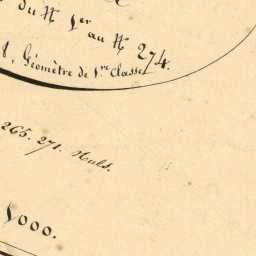 du N 1er
au N 274.
Géomètre de 1re Classe
265. 271. Nuls.
1000.